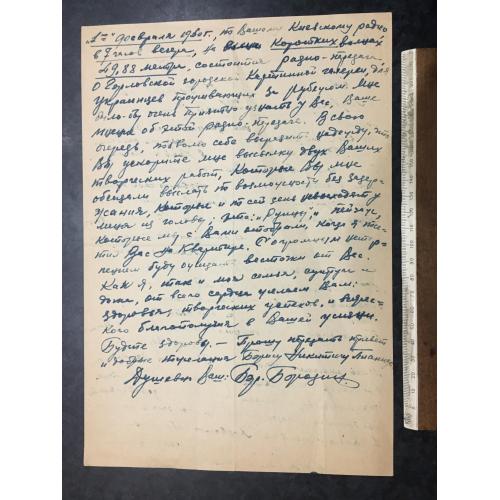 „1го" февраля 1960г., по Вашему Киевскому радио
в 7 часов вечера, на коротких волнах,
49,88 метра, состоится радио-передача,
о Горловской городской Картинной галереи, для
украинцев проживающих за рубежом. Мне
было бы очень приятно узнать у Вас, Ваше
мнение об этой радио-передаче. В свою
очередь, позволю себе выразить надежду, что
Вы ускорите мне высылку двух Ваших
творческих работ, которые Вы мне
обещали выслать по возможности без задер-
жания, которые и по сей день не выходят у
меня из головы; это: „Дунай" и пейзаж,
которые мы с Вами отобрали, когда я
Вас на квартире. С огромным нетер-
пением буду ожидать весточки от Вас.
Как я, так и моя семья,
от всего сердца желаем Вам:
здоровья, творческих успехов, и
кого благополучия в Вашей жизни.
Будьте здоровы. — Прошу передать привет
и добрые пожелания Борису Никитичу
Душевно Ваш.